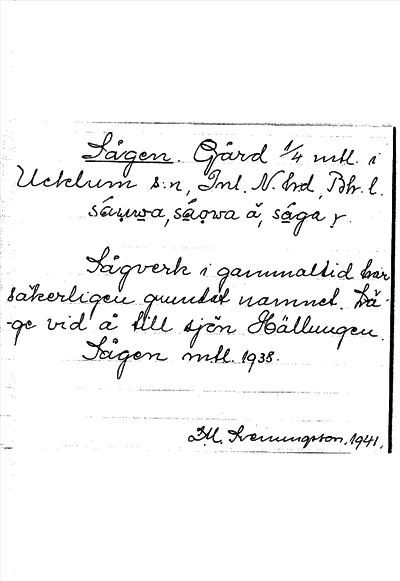 Sågen. Gård 1/4 mtl. i
Ucklum s:n, Inl. N. hd, Bh. l.
så̱u̯wa, så̱o̯wa ä, så̱ga y.
Sågverk i gammal tid har
säkerligen grundat namnet. Lä-
-ge vid å till sjön Hällungen.
Sågen mtl. 1938.
D.U. Svenungsson. 1941.